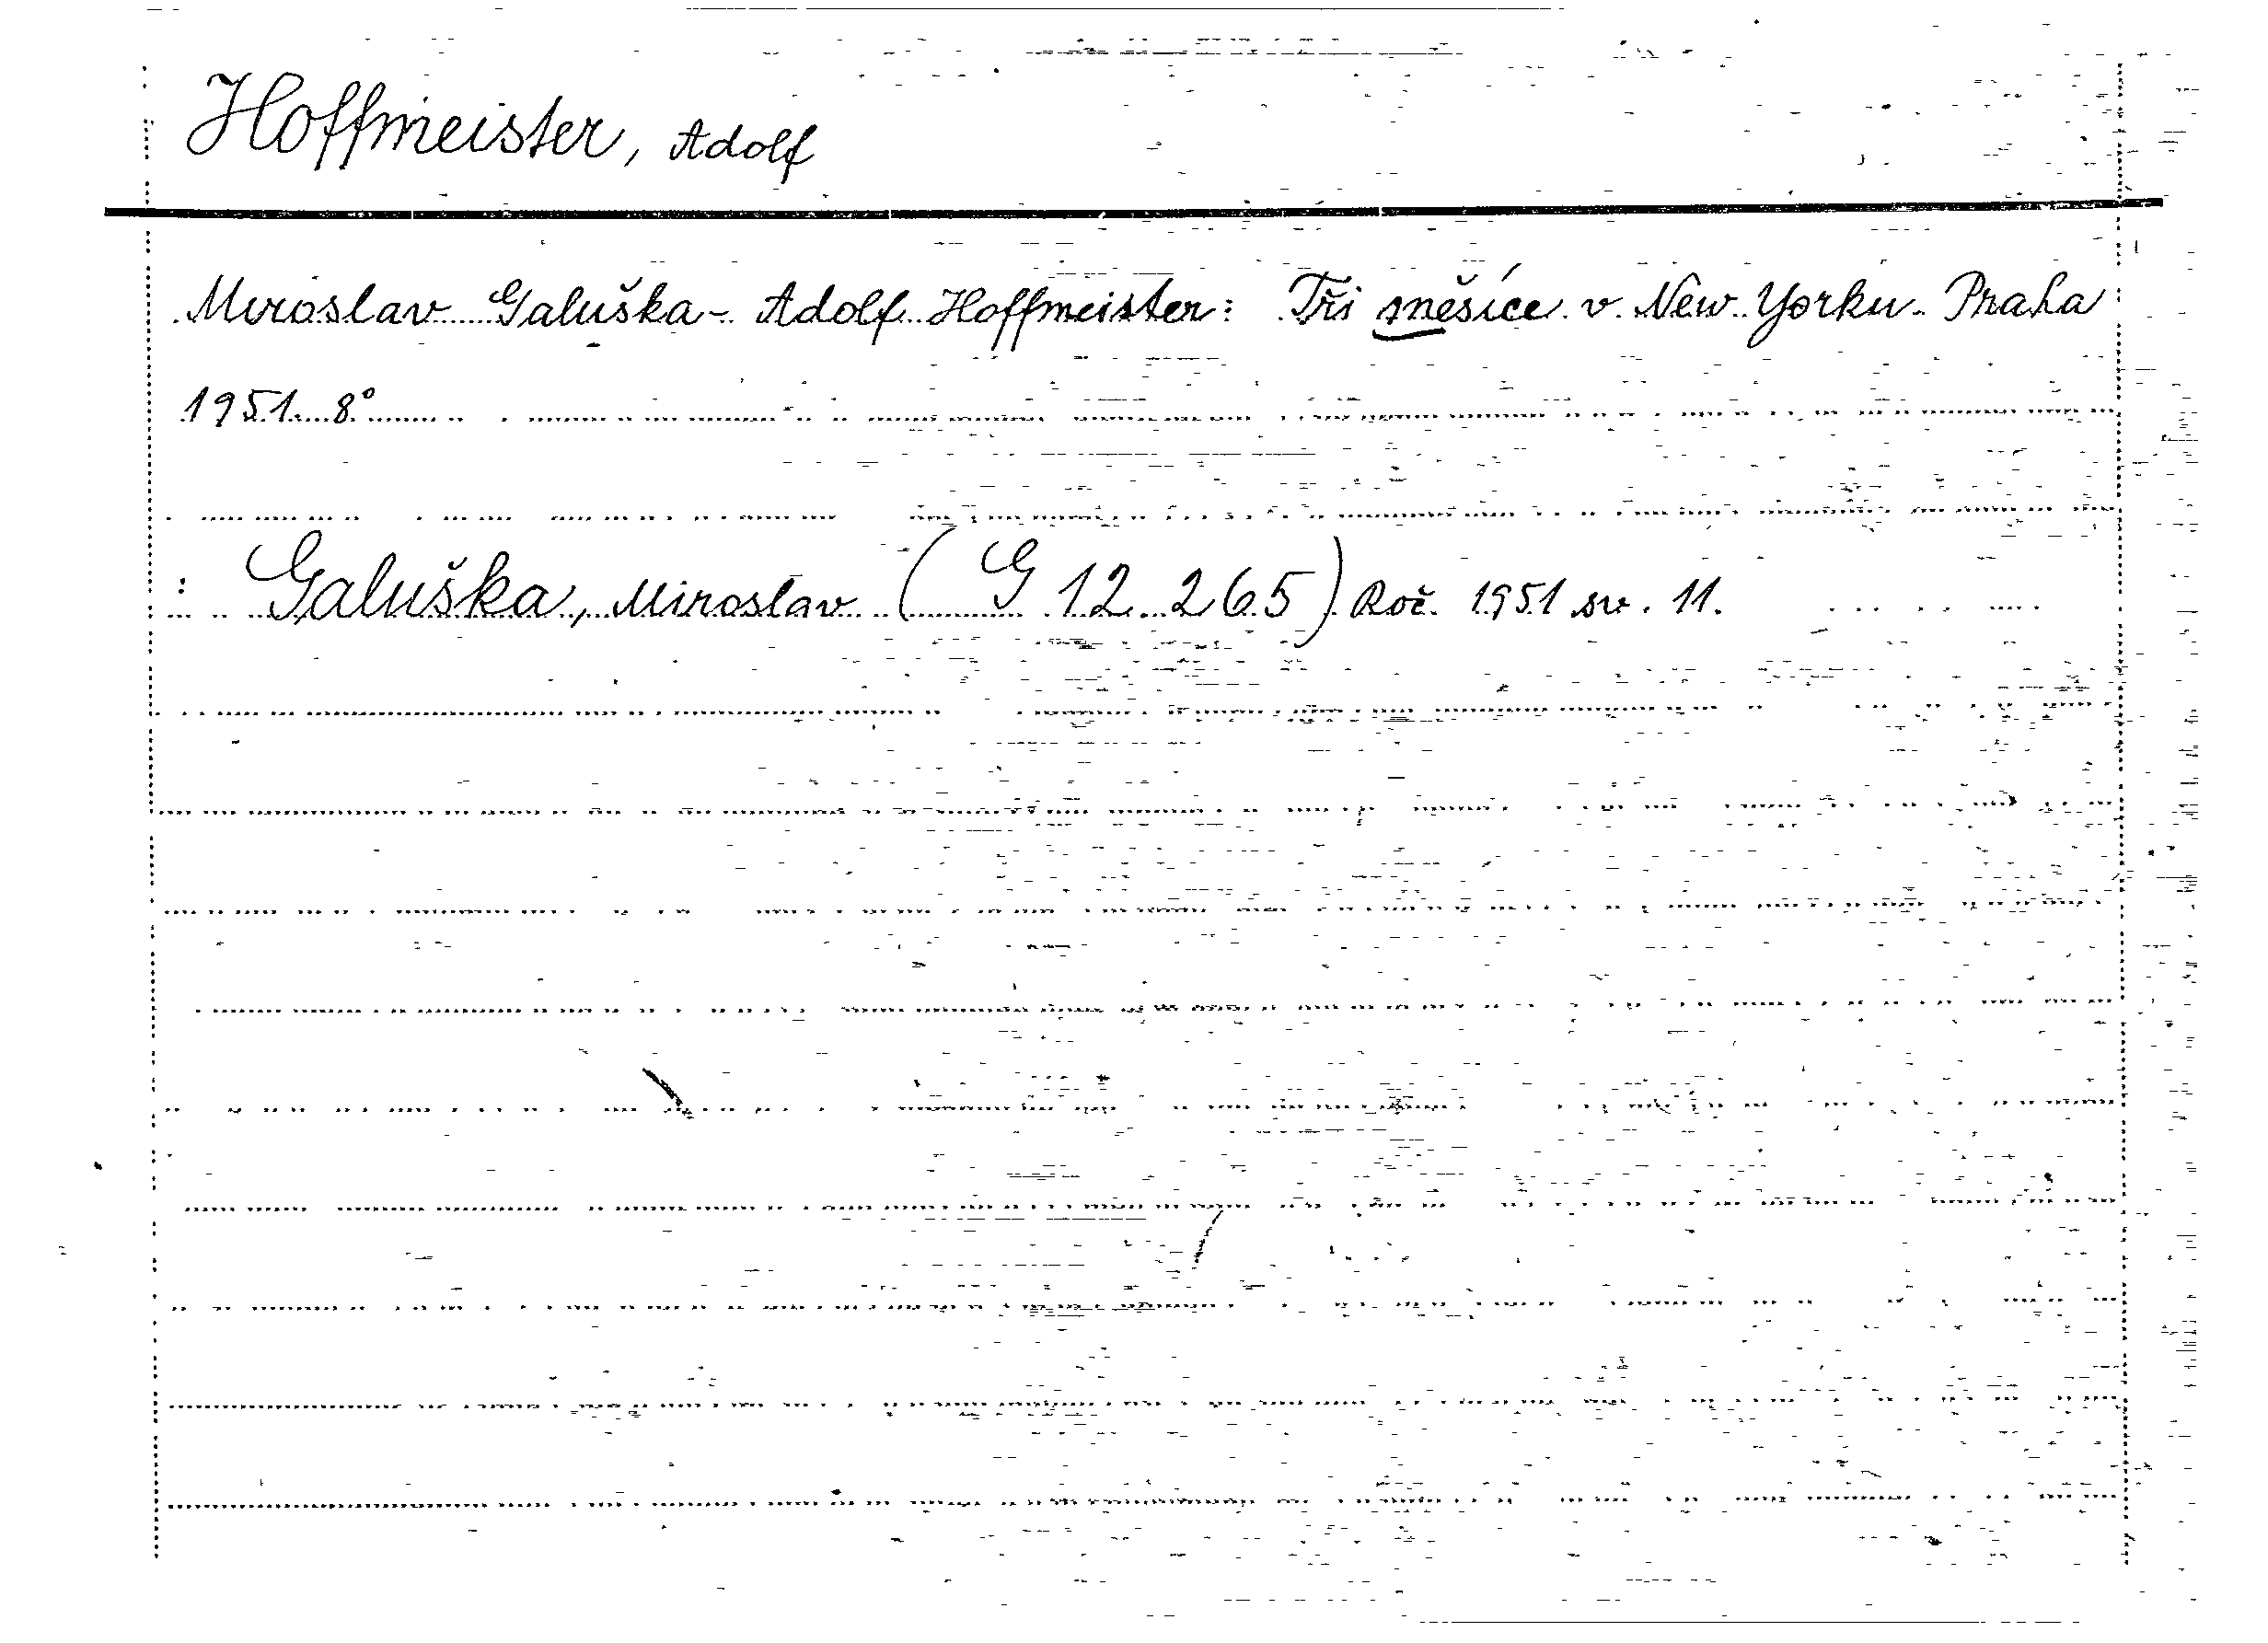 Hoffmeister, Adolf
Miroslav Galuška - Adolf Hoffmeister: Tři měsíce v New Yorku. Praha
1951. 8°
: Galuška, Miroslav (G 12.265) Roč. 1951 sv. 11.